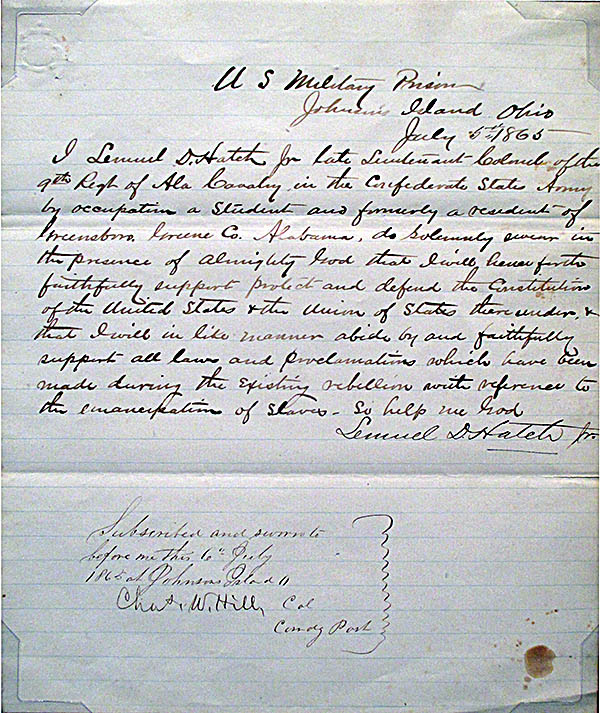 U S Military Prison
Johnsons Island Ohio
July 5th 1865
I Lemuel D. Hatch Jr late Lieutenant Colonel of the
9th Regt of Ala Cavalry, in the Confederate States Army
by occupation a Student and formerly a resident of
Greensboro, Greene Co. Alabama, do Solemnly swear in
the presence of Almighty God that I will henceforth
faithfully support protect and defend the Constitution
of the United States & the Union of States thereunder, &
that I will in like manner abide by and faithfully
support all laws and proclamations which have been
made during the existing rebellion with reference to
the emancipation of Slaves - So help me God
Lemuel D. Hatch Jr.
Subscribed and sworn to
before me this 6th July
1865 at Johnsons Island O
Chas. W. Hill, Col
Comdg Post